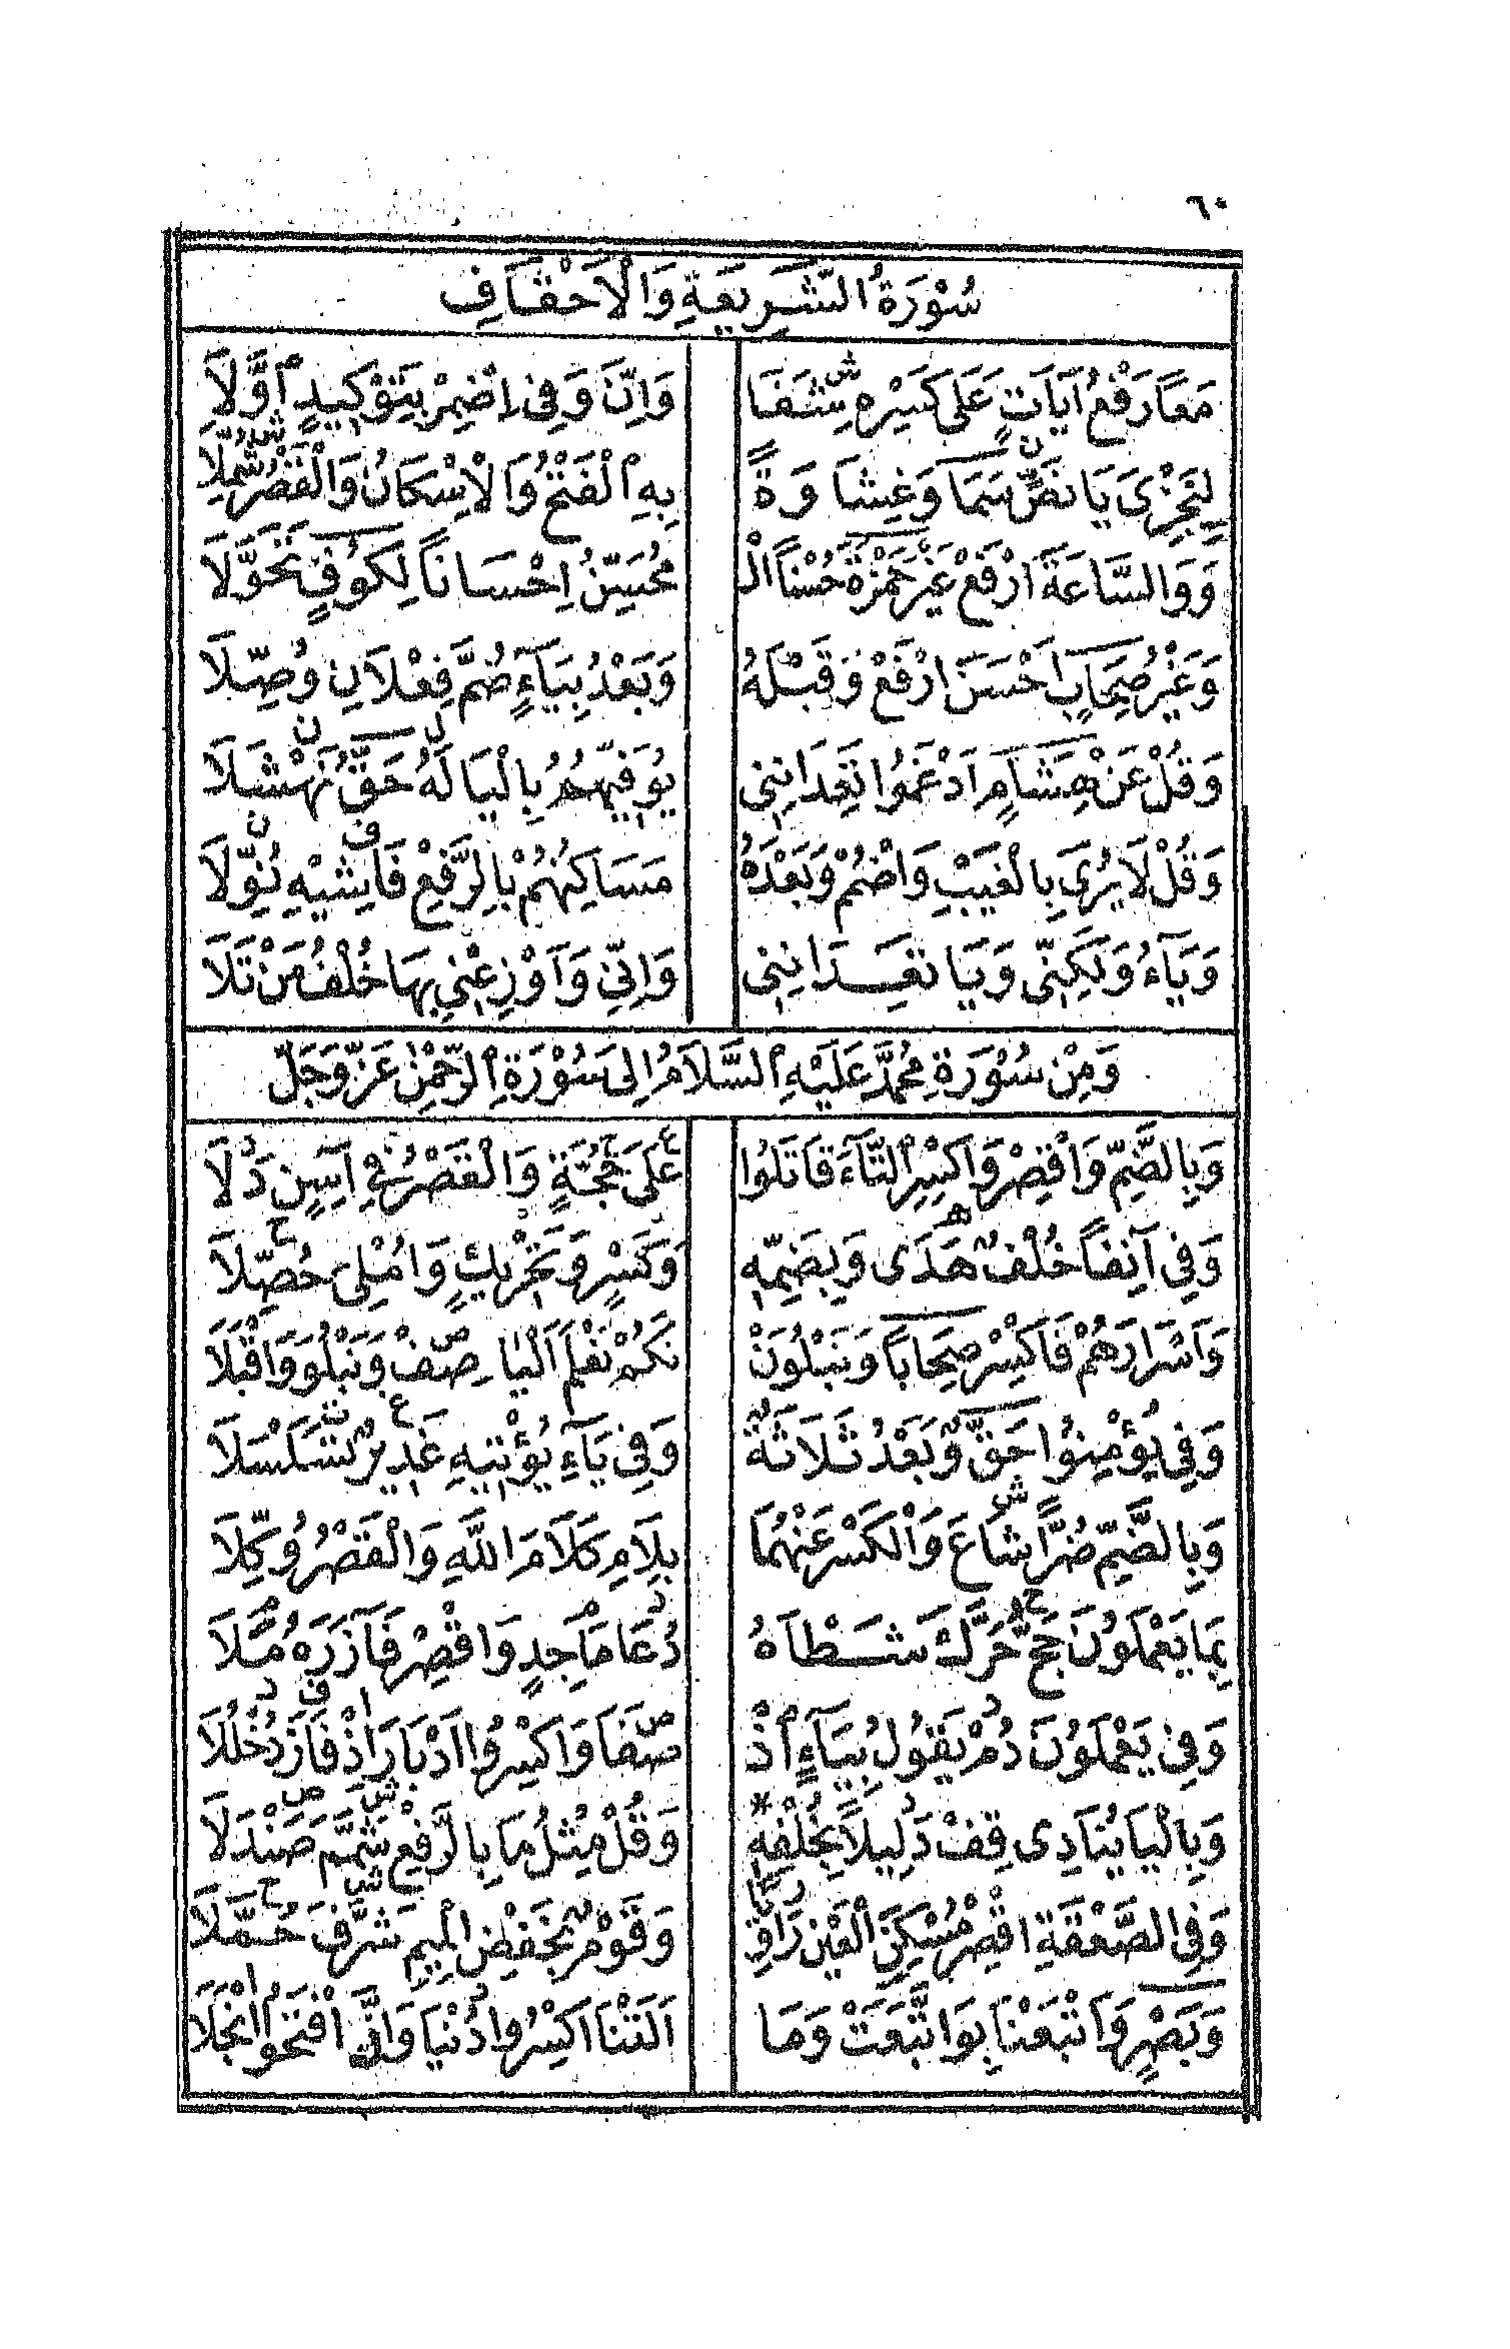 ٦٠
سُوْرَةُ الشَّرِيعَةِ وَالْاَحْقَافِ
مَعًا رَفْعُ اٰيَاتٍ عَلَى كَسْرِهِ شَفَا وَاِنَّ وَفِى اِضْمِرْ بِتَوْكِيدٍ اَوَّلَا
لِنَجْزِىَ يَا نَصٌّ سَمَا وَغِشَاوَةً بِهِ الْفَتْحُ وَالْاِسْكَانُ وَالْقَصْرُ شُمِّلَا
وَوَالسَّاعَةَ ارْفَعْ غَيْرَ حَمْزَةَ حُسْنًا الْـ مُحَسِّنُ اِحْسَانًا لِكُوفٍ تَحَوَّلَا
وَغَيْرُ صِحَابٍ اَحْسَنَ ارْفَعْ وَقَبْلَهُ وَبَعْدُ بِيَآءٍ ضُمَّ فِعْلَانِ وُصِّلَا
وَقُلْ عَنْ هِشَامٍ اَدْغَمُوا تَعِدَانِنِى يُوَفِّيَهُمُ بِالْيَا لَهُ حَقُّ نَهْشَلَا
وَقُلْ لَا يُرَى بِالْغَيْبِ وَاضْمُمْ وَبَعْدَهُ مَسَاكِنُهُمْ بِالرَّفْعِ فَاشِيْهِ نُوِّلَا
وَيَآءُ وَلَكِنِّى وَيَا تَعِدَانِنِى وَاِنِّى وَاَوْزِعْنِى بِهَا خُلْفُ مَنْ تَلَا
وَمِنْ سُوْرَةِ مُحَمَّدٍ عَلَيْهِ السَّلَامُ اِلَى سُوْرَةِ الرَّحْمٰنِ عَزَّ وَجَلَّ
وَبِالضَّمِّ وَاقْصِرْ وَاكْسِرِ التَّآءَ قَاتَلُوا عَلَى حُجَّةٍ وَالْقَصْرُ فِى اٰسِنٍ دَلَا
وَفِى اٰنِفًا خُلْفٌ هَدَى وَبِضَمِّهِ وَكَسْرٍ وَتَحْرِيكٍ وَاُمْلِىَ حُصِّلَا
وَاَسْرَارَهُمْ فَاكْسِرْ صِحَابًا وَنَبْلُوَنْ نَكُمْ نَعْلَمَ الْيَا صِفْ وَنَبْلُوَ وَاقْبَلَا
وَفِى يُؤْمِنُوا حَقٌّ وَبَعْدُ ثَلَاثَةٌ وَفِى يَآءِ يُؤْتِيهِ غَدِيرٌ تَسَلْسَلَا
وَبِالضَّمِّ ضُرًّا شَاعَ وَالْكَسْرُ عَنْهُمَا بِلَامِ كَلَامَ اللّٰهِ وَالْقَصْرُ وُكِّلَا
بِمَا يَعْمَلُونَ حَجَّ حَرَّكَ شَطْاَهُ دُعَا مَاجِدٍ وَاقْصِرْ فَاٰزَرَهُ مُلَا
وَفِى يَعْمَلُونَ دُمْ يَقُولُ بِيَآءٍ اذْ صَفَا وَاكْسِرُوا اَدْبَارَ اِذْ فَازَ دُخْلُلَا
وَبِالْيَا يُنَادِى قِفْ دَلِيلًا بِخُلْفِهِ وَقُلْ مِثْلُ مَا بِالرَّفْعِ شَمَّمَ صَنْدَلَا
وَفِى الصَّعْقَةِ اقْصِرْ مُسْكِنَ الْعَيْنِ رَاوِيًا وَقَوْمٌ بِخَفْضِ الْمِيمِ شَرَّفَ حُمَّلَا
وَبَصْرٍ وَاَتْبَعْنَا بِوَاتَّبَعَتْ وَمَا اَلَتْنَا اكْسِرُوا دُنْيَا وَاِنَّ افْتَحُوا انْجَلَا